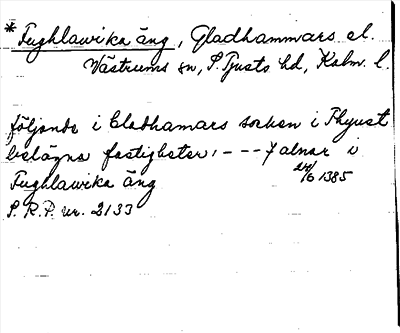 * Fughlawika äng, Gladhammars el.
Västrums sn, S. Tjusts hd, Kalm. l.
följande i Gladhamars socken i Thyust
belägna fastigheter: - - - 7 alnar i
Fughlawika äng 24/6 1385
S. R. P. nr. 2133